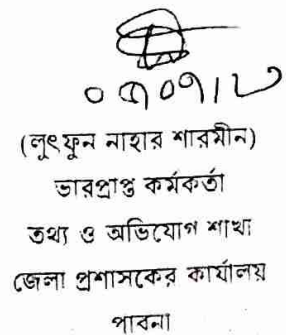 (লুৎফুন নাহার শারমীন)
ভারপ্রাপ্ত কর্মকর্তা
তথ্য ও অভিযোগ শাখা
জেলা প্রশাসকের কার্যালয়
পাবনা